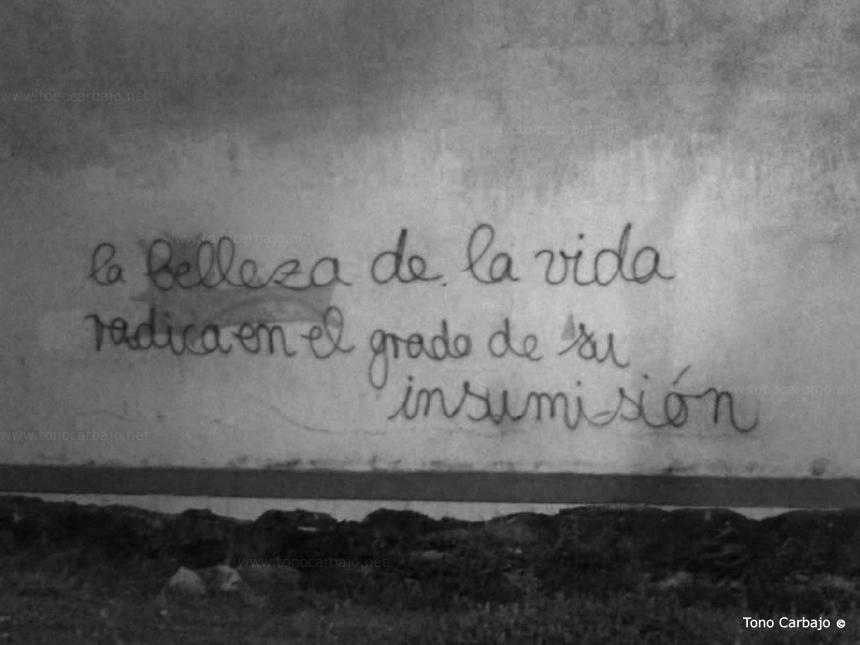 www.tonocarbajo.net
www.tonocarbajo.net
www.tonocarbajo.net
la belleza de la vida
radica en el grado de su
insumisión
www.tonocarbajo.net
www.tonocarbajo.net
www.tonocarbajo.net
www.tonocarbajo.net
Tono Carbajo ©